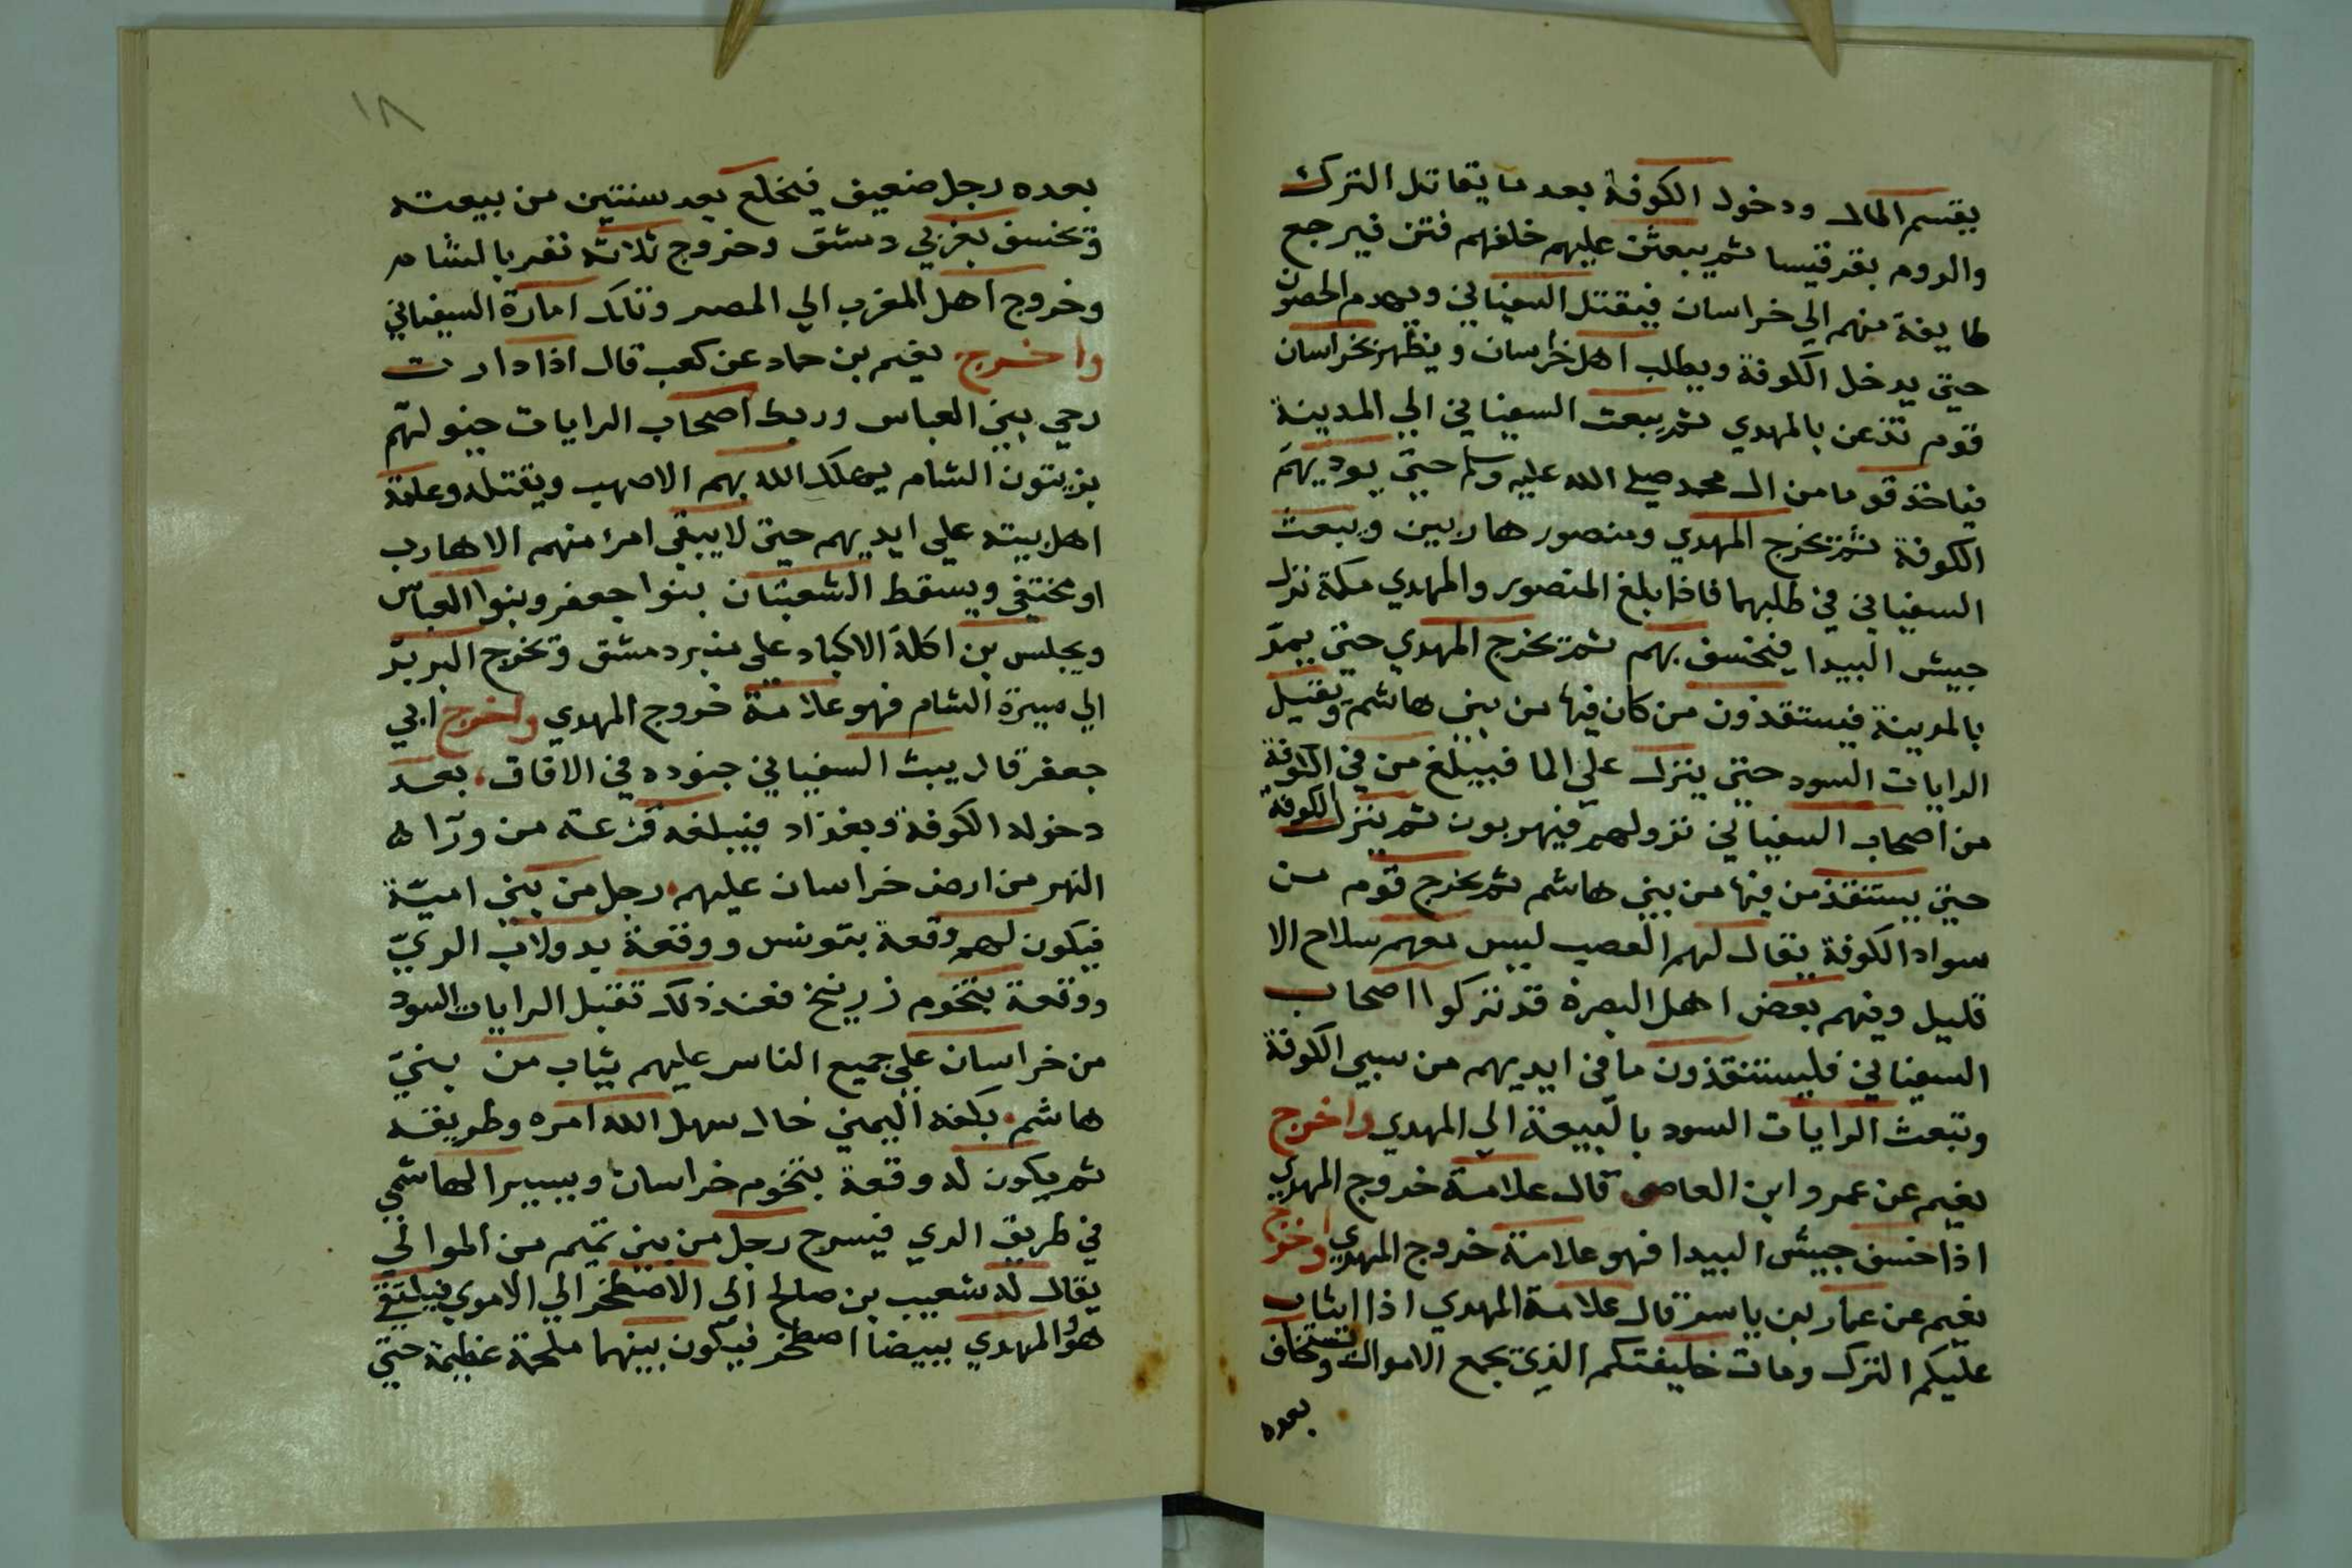 يقسم المال ودخول الكوفة بعد ما يقاتل الترك
والروم بقرقيسا ثم يبعثق عليهم خلفهم فتق فيرجع
طايفة منهم الي خراسان فيقتل السفياني ويهدم الحصون
حتي يدخل الكوفة ويطلب اهل خراسان ويظهر بخراسان
قوم تذعن بالمهدي ثم يبعث السفياني الي المدينة
فياخذ قوما من ال محمد صلي الله عليه وسلم حتي يوديهم
الكوفة ثم يخرج المهدي ومنصور هاربين ويبعث
السفياني في طلبهما فاذا بلغ المنصور والمهدي مكة نزل
جيش البيدا فيخسف بهم ثم يخرج المهدي حتي يمد
بالمدينة فيستقذون من كان فيها من بني هاشم وتقبل
الرايات السود حتي ينزل علي الما فيبلغ من في الكوفة
من اصحاب السفياني نزولهم فيهربون ثم ينزل الكوفة
حتي يستنقذ من فيها من بني هاشم ثم يخرج قوم من
سواد الكوفة يقال لهم العصب ليس معهم سلاح الا
قليل وفيهم بعض اهل البصرة قد تركوا اصحاب
السفياني فليستنقذون ما في ايديهم من سبي الكوفة
وتبعث الرايات السود بالبيعة الي المهدي واخرج
نعيم عن عمرو ابن العاصي قال علامة خروج المهدي
اذا خسف جيش البيدا فهو علامة خروج المهدي واخرج
نعيم عن عمار بن ياسر قال علامة المهدي اذا انثاب
عليكم الترك ومات خليفتكم الذي يجمع الاموال وتستخلف
بعده
١٨
بعده رجل ضعيف فيخلع بعد سنتين من بيعته
وتخسف بغربي دمشق وخروج ثلاثة نفر بالشام
وخروج اهل المغرب الي المصر وتلك امارة السفياني
واخرج نعيم بن حماد عن كعب قال اذا دارت
رحي بني العباس وربط اصحاب الرايات خيولهم
بزيتون الشام يهلك الله بهم الاصهب ويقتله وعامة
اهل بيته علي ايديهم حتي لا يبقي امرء منهم الا هارب
او مختفي ويسقط الشعبتان بنوا جعفر وبنوا العباس
ويجلس بن اكلة الاكباد علي منبر دمشق وتخرج البربر
الي سيرة الشام فهو علامة خروج المهدي واخرج ابي
جعفر قال يبث السفياني جنوده في الافاق بعد
دخوله الكوفة وبغداد فيبلغه فزعة من ورآ ا
النهر من ارض خراسان عليهم رجل من بني امية
فيكون لهم وقعة بتونس ووقعة بدولاب الري
ووقعة بتخوم زرينخ فعند ذلك تقبل الرايات السود
من خراسان علي جميع الناس عليهم شاب من بني
هاشم بكفه اليمني خال سهل الله امره وطريقه
ثم يكون له وقعة بتخوم خراسان ويسير الهاشمي
في طريق الري فيسرح رجل من بني تميم من الموالي
يقال له شعيب بن صالح الي الاصطخر الي الاموي فيلتقي
هو المهدي ببيضا اصطخر فيكون بينهما ملحمة عظيمة حتي